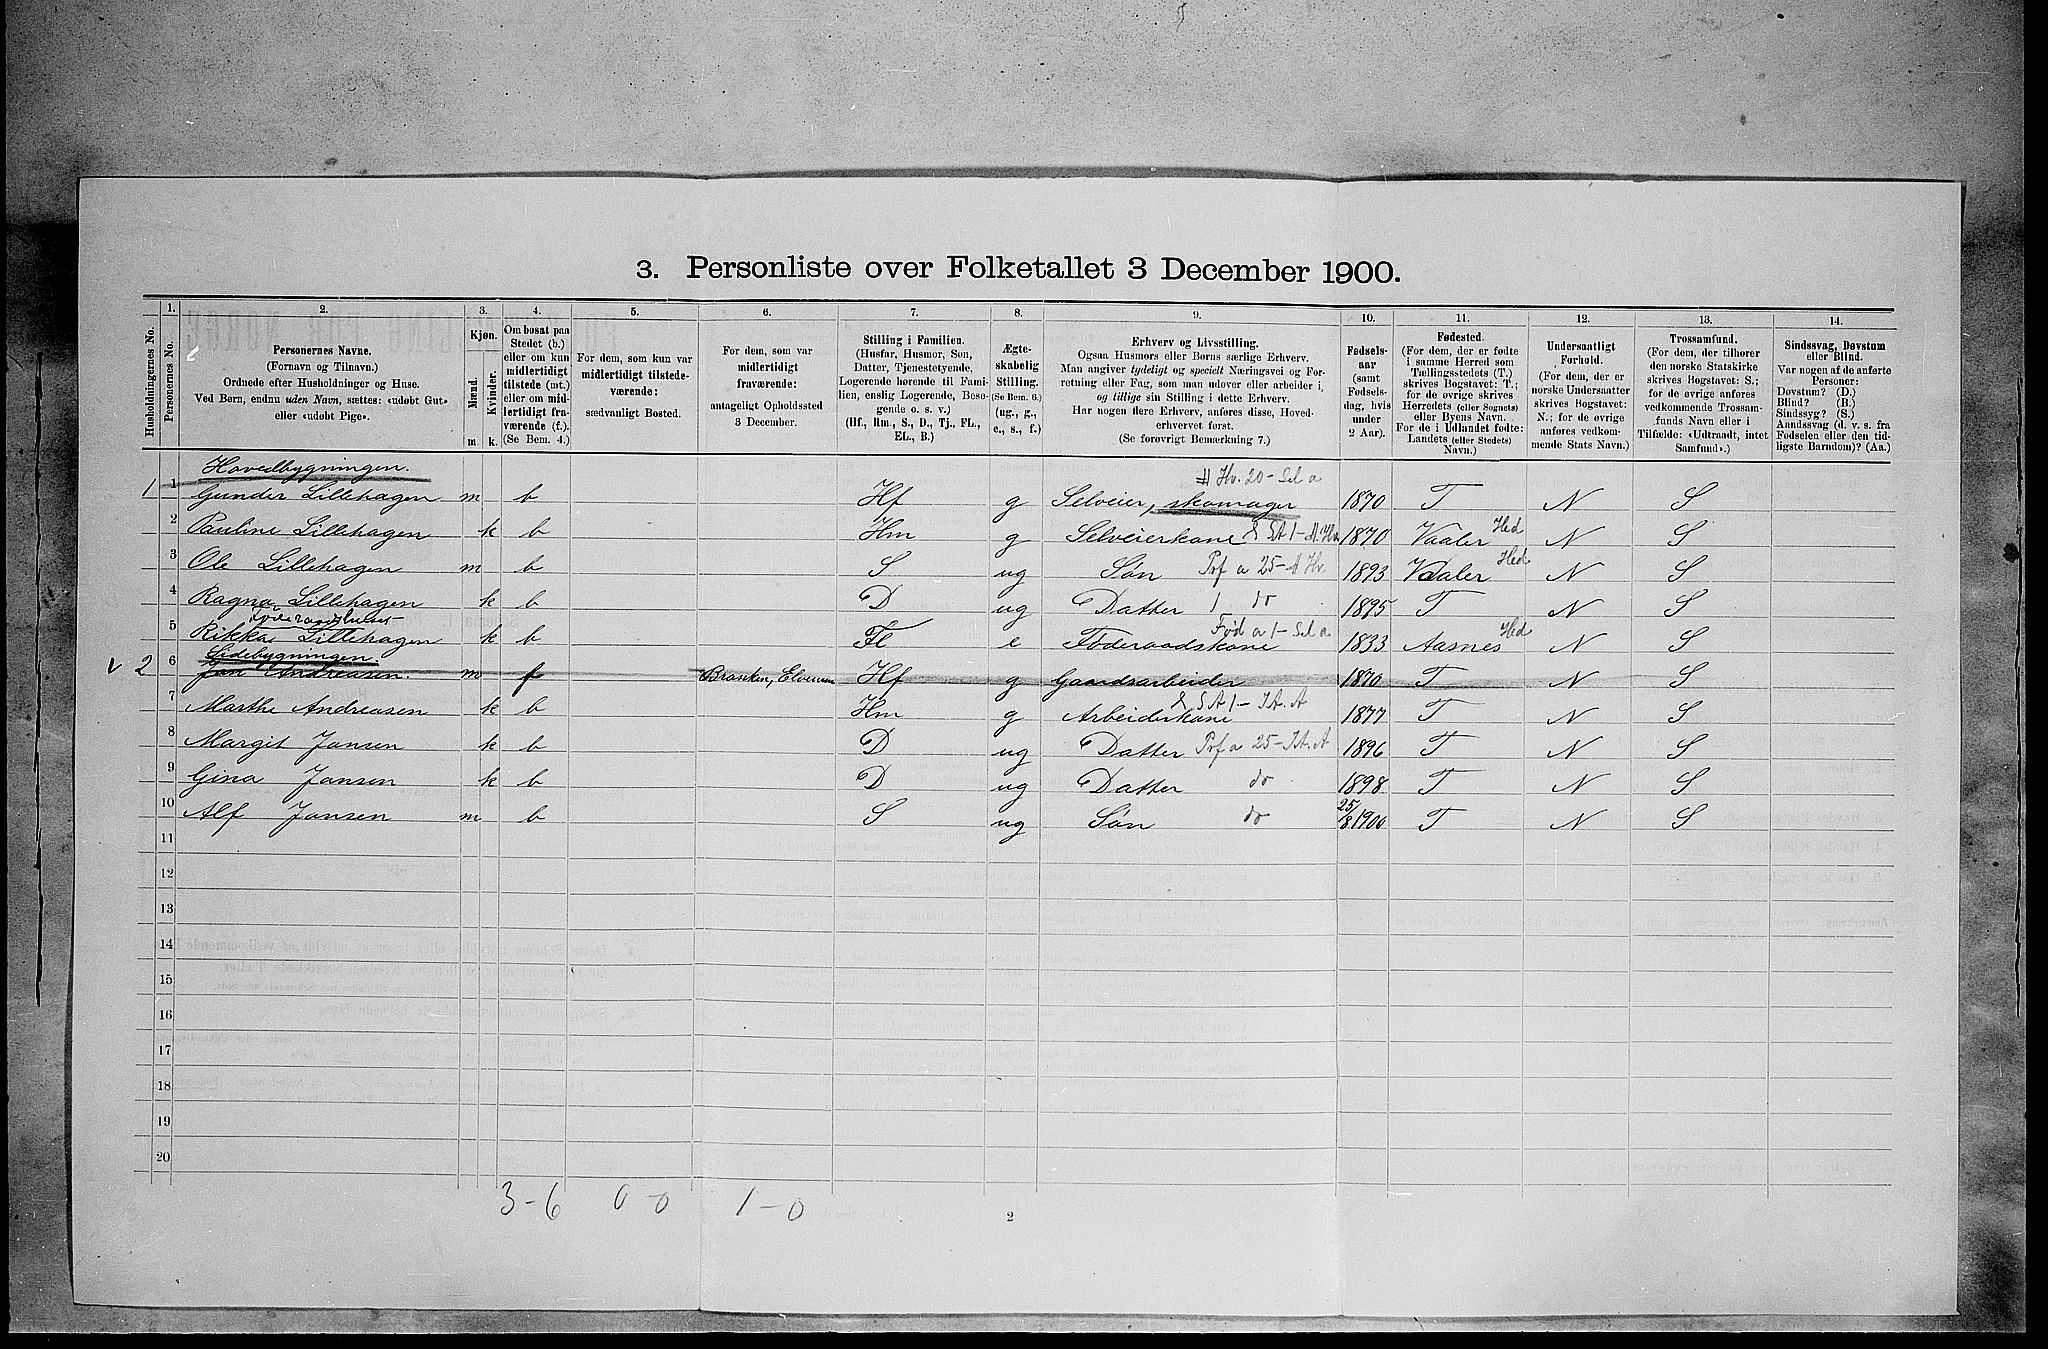 3. Personliste over Folketallet 3 December 1900.
1. 2. 3. 4. 5. 6. 7. 8. 9. 10. 11. 12. 13. 14.
Husholdningernes No.
Personernes No.
Personernes Navne.
(Fornavn og Tilnavn.)
Ordnede efter Husholdninger og Huse.
Ved Børn, endnu uden Navn, sættes: «udøbt Gut»
eller «udøbt Pige».
Kjøn.
Mænd.
Kvinder.
m. k.
Om bosat paa
Stedet (b.)
eller om kun
midlertidigt
tilstede (mt.)
eller om mid-
lertidigt fra-
værende (f.).
(Se Bem. 4.)
For dem, som kun var
midlertidigt tilstede-
værende:
sædvanligt Bosted.
For dem, som var
midlertidigt
fraværende:
antageligt Opholdssted
3 December.
Stilling i Familien.
(Husfar, Husmor, Søn,
Datter, Tjenestetyende,
Logerende hørende til Fami-
lien, enslig Logerende, Besø-
gende o. s. v.)
(Hf., Hm., S., D., Tj., FL.,
EL., B.)
Ægte-
skabelig
Stilling.
(Se Bem. 6.)
(ug., g.,
e., s., f.)
Erhverv og Livsstilling.
Ogsaa Husmors eller Børns særlige Erhverv.
Man angiver tydeligt og specielt Næringsvei og For-
retning eller Fag, som man udover eller arbeider i,
og tillige sin Stilling i dette Erhverv.
Har nogen flere Erhverv, anføres disse, Hoved-
erhvervet først.
(Se forøvrigt Bemærkning 7.)
Fødsels-
aar
(samt
Fødsels-
dag, hvis
under
2 Aar).
Fødested.
(For dem, der er fødte
i samme Herred som
Tællingsstedets (T.)
skrives Bogstavet: T.;
for de øvrige skrives
Herredets (eller Sognets)
eller Byens Navn.
For de i Udlandet fødte:
Landets (eller Stedets)
Navn.)
Undersaatligt
Forhold.
(For dem, der er
norske Undersaatter
skrives Bogstavet:
N.; for de øvrige
anføres vedkom-
mende Stats Navn.)
Trossamfund.
(For dem, der tilhører
den norske Statskirke
skrives Bogstavet: S.;
for de øvrige anføres
vedkommende Trossam-
funds Navn eller i
Tilfælde: «Udtraadt, intet
Samfund».)
Sindssvag, Døvstum
eller Blind.
Var nogen af de anførte
Personer:
Døvstum? (D.)
Blind? (B.)
Sindssyg? (S.)
Aandssvag (d. v. s. fra
Fødselen eller den tid-
ligste Barndom)? (Aa.)
Hovedbygningen.
Hv. 20 - Sel a
1 1 Gunder Lillehagen m b Hf g Selveier, skomager 1870 T N S
2 Pauline Lillehagen k b Hm g Selveierkone 1870 Vaaler Hed N S
3 Ole Lillehagen m b S ug Søn Pf a 25 - Hv. 1893 Vaaler Hed N S
4 Ragna Lillehagen k b D ug Datter do 1895 T N S
5 Rikka Lillehagen k b FL e Føderaadskone Fød a 1 - Sel a 1833 Aasnes Hed N S
Sidebygningen.
v 2 6 Jan Andreasen. m f Branken, Elverum Hf g Gaardsarbeider 1870 T N S
7 Marthe Andreasen k b Hm g Arbeiderkone 1877 T N S
8 Margit Jansen k b D ug Datter Pf a 25 - It. A 1896 T N S
9 Gina Jansen k b D ug Datter do 1898 T N S
10 Alf Jansen m b S ug Søn do 25/8 1900 T N S
11
12
13
14
15
16
17
18
19
20
3 - 6 0 - 0 1 - 0
2